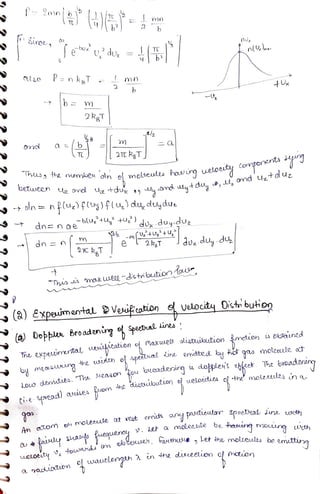 P = 2mn [b/π]^3/2 [1/4 (π/b³)^1/2] = 1/2 mn/b
Since, ∫ e^-bux² ux² dux = 1/4 [π/b³]^1/2
also P = n kB T = 1/2 mn/b
→ b = m/2kBT
and a = (b/π)^3/2 = [m/2πkBT]^3/2 = a
Thus, the number dn of molecules having velocity components lying
between ux and ux + dux, uy and uy + duy, uz and uz + duz
→ dn = n f(ux) f(uy) f(uz) dux duy duz
dn = n a e^-b(ux² + uy² + uz²) dux.duy.duz
→ dn = n [m/2πkBT]^3/2 e^-m(ux²+uy²+uz²)/2kBT dux duy duz
"This is maxwell-distribution law".
(2) Experimental Verification of velocity Distribution
(a) Doppler Broadening of spectral line:
The experimental verification of Maxwell distribution function is obtained
by measuring the width of spectral line emitted by hot gas molecule at
Low densities. The reason for broadening is doppler's effect. The broadening
(i.e spread) arises from the distribution of velocities of the molecules in a
gas.
An atom or molecule at rest emits any particular spectral line with
a fairly sharp frequency ν. Let a molecule be moving with
velocity Vx towards an observer. Further, Let the molecules be emitting
a radiation of wavelength λ in the direction of motion